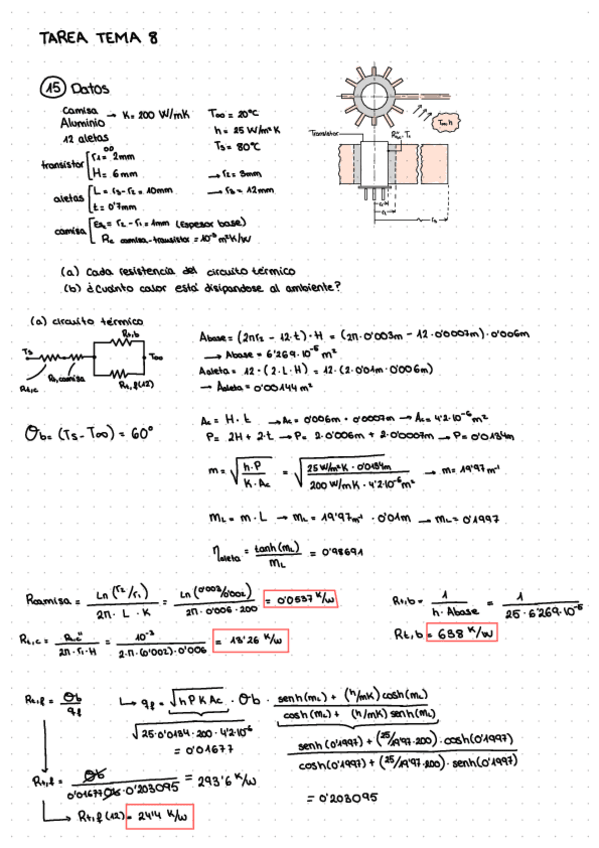 TAREA TEMA 8
15 Datos
Camisa Aluminio → K= 200 W/mK
12 aletas
transistor r1= 2mm
H= 6mm
aletas L = r3-r2 = 10mm
t = 0'7mm
camisa Esp = r2 - r1 = 1mm (Espesor base)
Rc camisa-transistor = 10⁻³ m²K/W
T∞ = 20ºC
h = 25 W/m²K
Ts = 80ºC
→ r2 = 3mm
→ r3 = 12mm
Transistor
T∞, h
(a) Cada resistencia del circuito térmico
(b) ¿Cuánto calor está disipándose al ambiente?
(a) circuito térmico
Rt,b
Ts
T∞
Rt,c
Rt,camisa
Rt,f(12)
Abase = (2πr2 - 12·t)·H = (2π·0'003m - 12·0'0007m)·0'006m
→ Abase = 6'269·10⁻⁵ m²
Aaleta = 12·(2·L·H) = 12·(2·0'01m·0'006m)
→ Aaleta = 0'00144 m²
θb = (Ts - T∞) = 60º
Ac = H·t → Ac = 0'006m · 0'0007m → Ac = 4'2·10⁻⁶ m²
P = 2H + 2·t → P = 2·0'006m + 2·0'0007m → P = 0'0134m
m = √(h·P / K·Ac) = √(25 W/m²K · 0'0134m / 200 W/mK · 4'2·10⁻⁶ m²) → m = 19'97 m⁻¹
mL = m·L → mL = 19'97 m⁻¹ · 0'01m → mL = 0'1997
ηaleta = tanh(mL) / mL = 0'98691
Rcamisa = Ln(r2/r1) / 2π·L·K = Ln(0'003/0'002) / 2π·0'006·200 = 0'0537 K/W
Rt,b = 1 / h·Abase = 1 / 25·6'269·10⁻⁵
Rt,c = Rt,c'' / 2π·r1·H = 10⁻³ / 2·π·(0'002)·0'006 = 13'26 K/W
Rt,b = 638 K/W
Rt,f = θb / qf → qf = √hPKAc · θb · senh(mL) + (h/mK) cosh(mL) / cosh(mL) + (h/mK) senh(mL)
√25·0'0134·200·4'2·10⁻⁶
= 0'01677
senh(0'1997) + (25/19'97·200)·cosh(0'1997) / cosh(0'1997) + (25/19'97·200)·senh(0'1997)
= 0'203095
Rt,f = θb / 0'01677·θb·0'203095 = 293'6 K/W
→ Rt,f (12) = 24'4 K/W